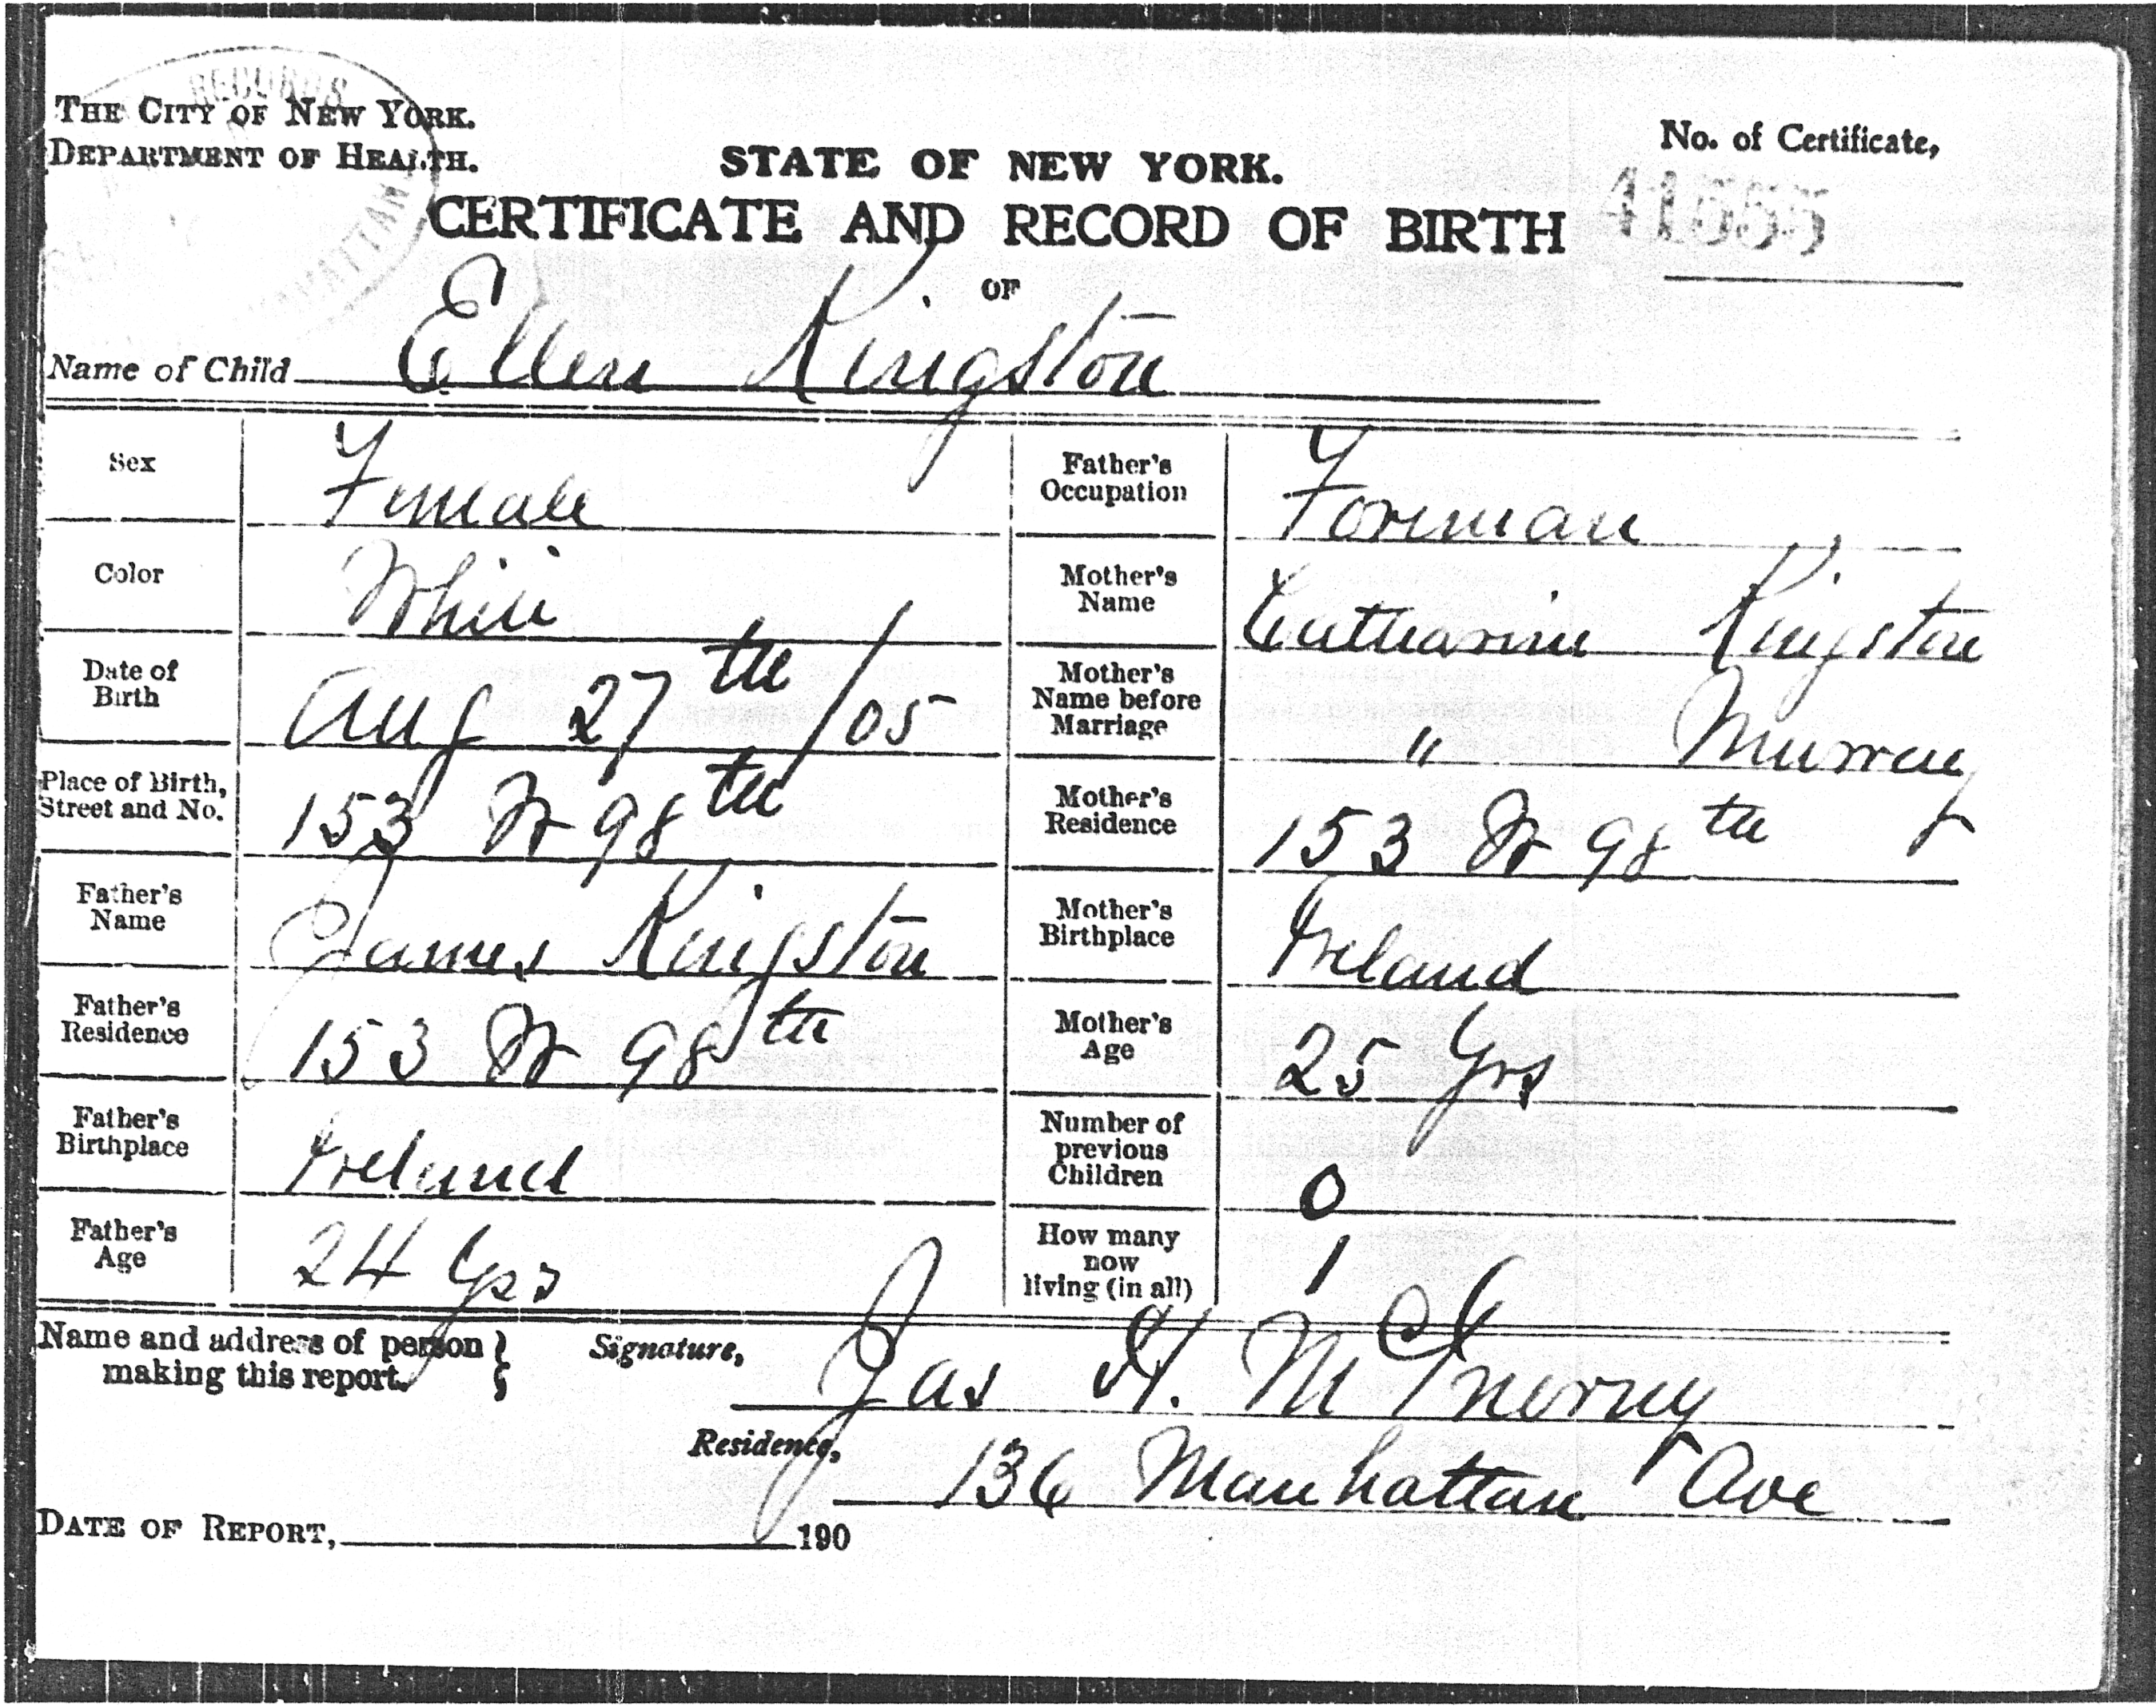 RECORDS
MANHATTAN
THE CITY OF NEW YORK.
DEPARTMENT OF HEALTH.
STATE OF NEW YORK.
No. of Certificate,
CERTIFICATE AND RECORD OF BIRTH
OF
Name of Child Ellen Kingston
Sex Female
Father's Occupation Forman
Color White
Mother's Name Catharine Kingston
Date of Birth Aug 27th/05
Mother's Name before Marriage " Murray
Place of Birth, Street and No. 153 W 98th
Mother's Residence 153 W 98th
Father's Name James Kingston
Mother's Birthplace Ireland
Father's Residence 153 W 98th
Mother's Age 25 Yrs
Father's Birthplace Ireland
Number of previous Children 0
Father's Age 24 Yrs
How many now living (in all) 1
Name and address of person making this report. Signature, Jas H. McInerney
Residence, 136 Manhattan Ave
DATE OF REPORT, 190